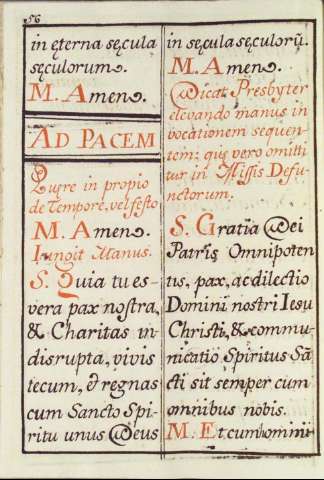 56
in ęterna sęcula
sęculorum.
M. Amen.
AD PACEM
Quęre in propio
de Tempore, vel festo
M. Amen.
Iungit Manus.
S. Quia tu es
vera pax nostra,
& Charitas in
disrupta, vivis
tecum, & regnas
cum Sancto Spi-
ritu unus Deus
in sęcula sęculorũ.
M. Amen.
Dicat Presbyter
elevando manus in
vocationem sequen-
tem: quę vero omitti
tur in Missis Defu-
nctorum.
S. Gratia Dei
Patris Omnipoten
tis, pax, ac dilectio
Domini nostri Iesu
Christi, & commu-
nicatio Spiritus Sã
cti sit semper cum
omnibus nobis.
M. Et cum homini